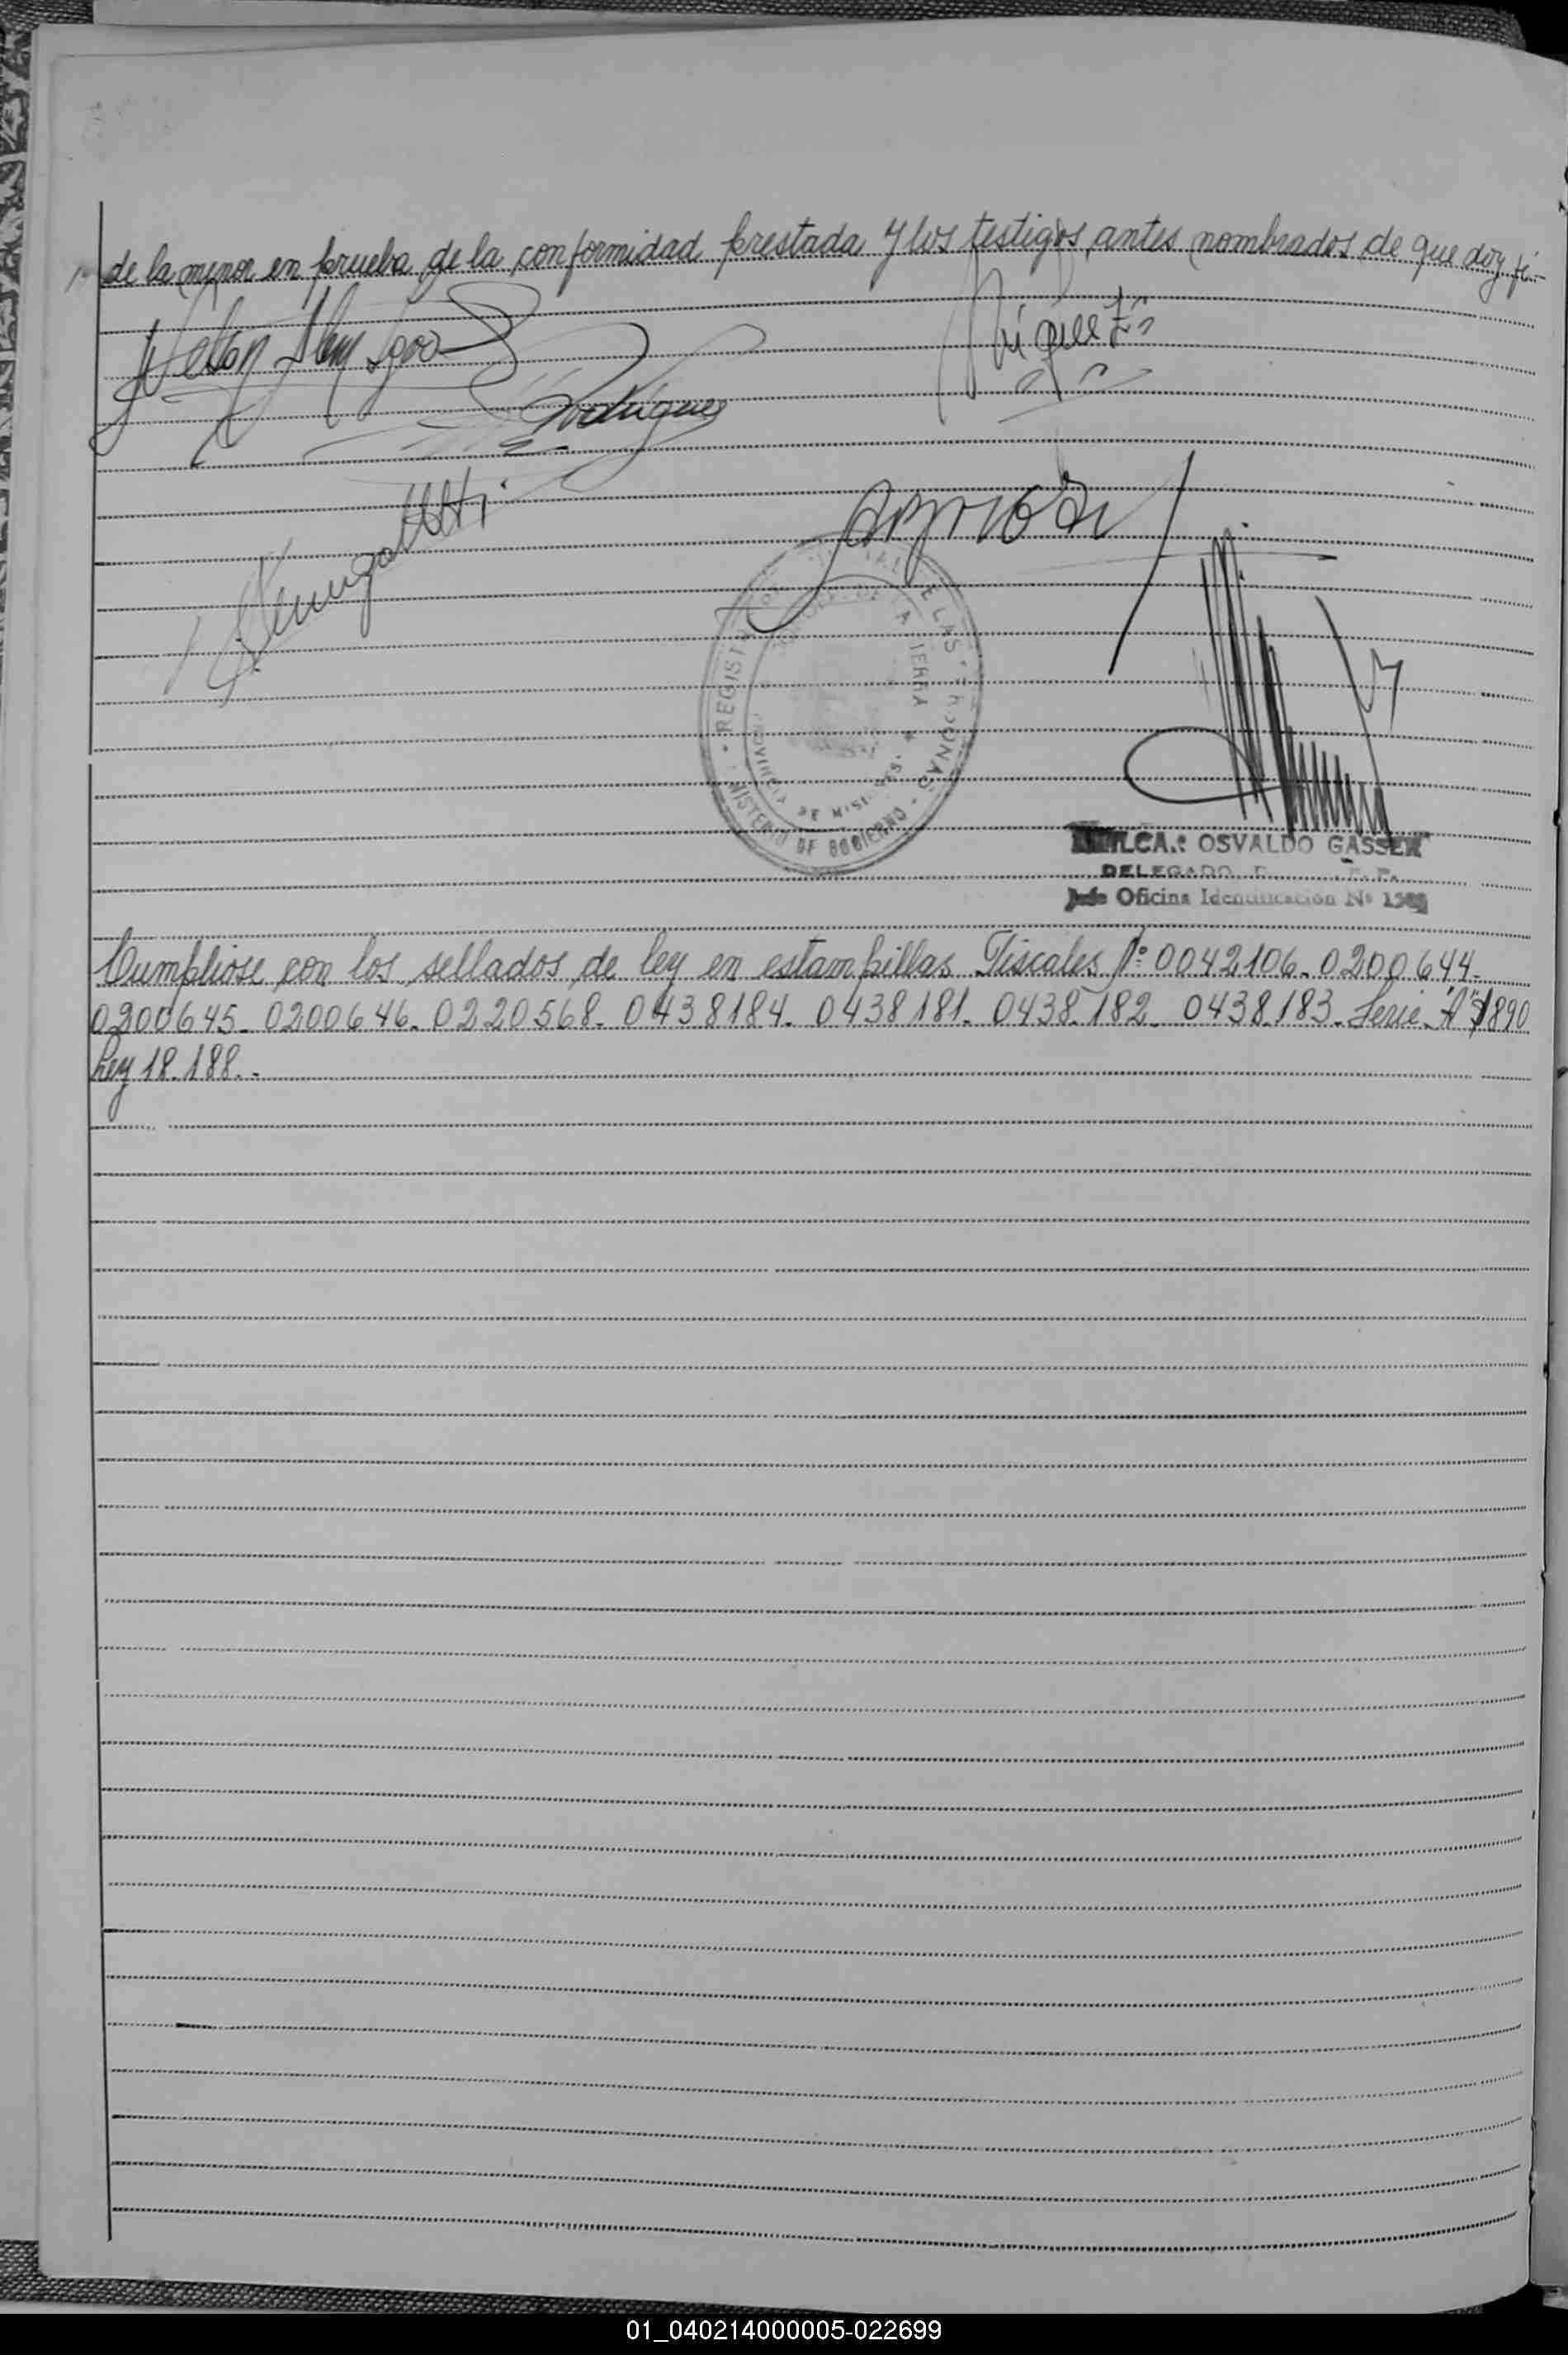 de la menor en prueba de la conformidad prestada y los testigos antes nombrados de que doy fé.-
Rodriguez
Miguel
REGISTRO PROVINCIAL DE LAS PERSONAS
MINISTERIO DE GOBIERNO
PROVINCIA DE MISIONES
OSVALDO GASSER
DELEGADO
Jefe Oficina Identificación Nº
Cumplióse con los sellados de ley en estampillas Fiscales Nº 0042106-0200644-
0200645-0200646-0220568-0438184-0438181-0438182-0438183-Serie "A" $1890
Ley 18.188.-
01_040214000005-022699